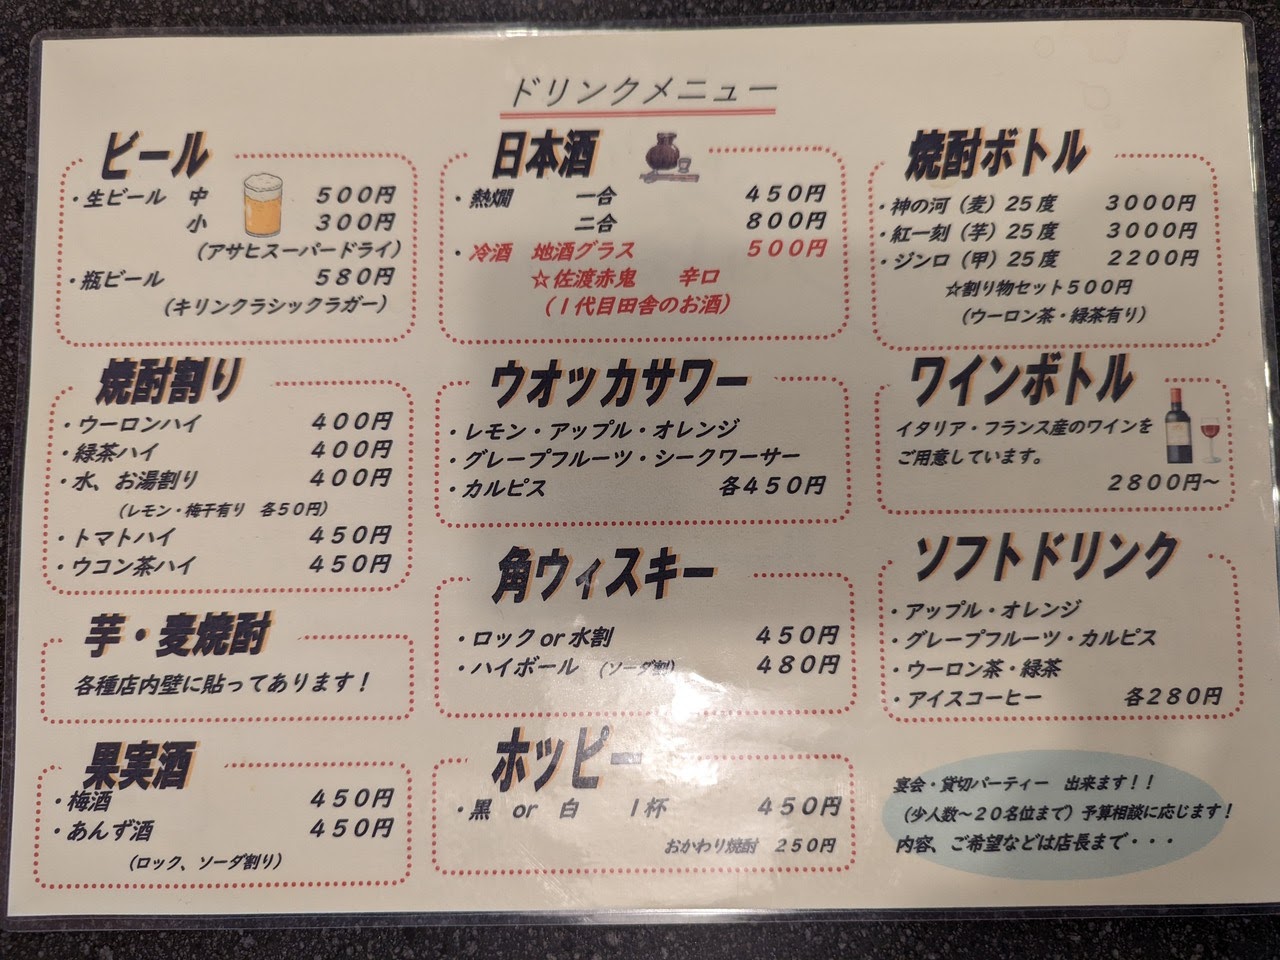 ドリンクメニュー
ビール
・生ビール 中 500円
小 300円
（アサヒスーパードライ）
・瓶ビール 580円
（キリンクラシックラガー）
焼酎割り
・ウーロンハイ 400円
・緑茶ハイ 400円
・水、お湯割り 400円
（レモン・梅干有り 各50円）
・トマトハイ 450円
・ウコン茶ハイ 450円
芋・麦焼酎
各種店内壁に貼ってあります！
果実酒
・梅酒 450円
・あんず酒 450円
（ロック、ソーダ割り）
日本酒
・熱燗 一合 450円
二合 800円
・冷酒 地酒グラス 500円
☆佐渡赤鬼 辛口
（1代目田舎のお酒）
ウオッカサワー
・レモン・アップル・オレンジ
・グレープフルーツ・シークワーサー
・カルピス 各450円
角ウィスキー
・ロックor水割 450円
・ハイボール （ソーダ割） 480円
ホッピー
・黒 or 白 1杯 450円
おかわり焼酎 250円
焼酎ボトル
・神の河（麦）25度 3000円
・紅一刻（芋）25度 3000円
・ジンロ（甲）25度 2200円
☆割り物セット500円
（ウーロン茶・緑茶有り）
ワインボトル
イタリア・フランス産のワインを
ご用意しています。
2800円～
ソフトドリンク
・アップル・オレンジ
・グレープフルーツ・カルピス
・ウーロン茶・緑茶
・アイスコーヒー 各280円
宴会・貸切パーティー 出来ます！！
（少人数～20名位まで）予算相談に応じます！
内容、ご希望などは店長まで・・・